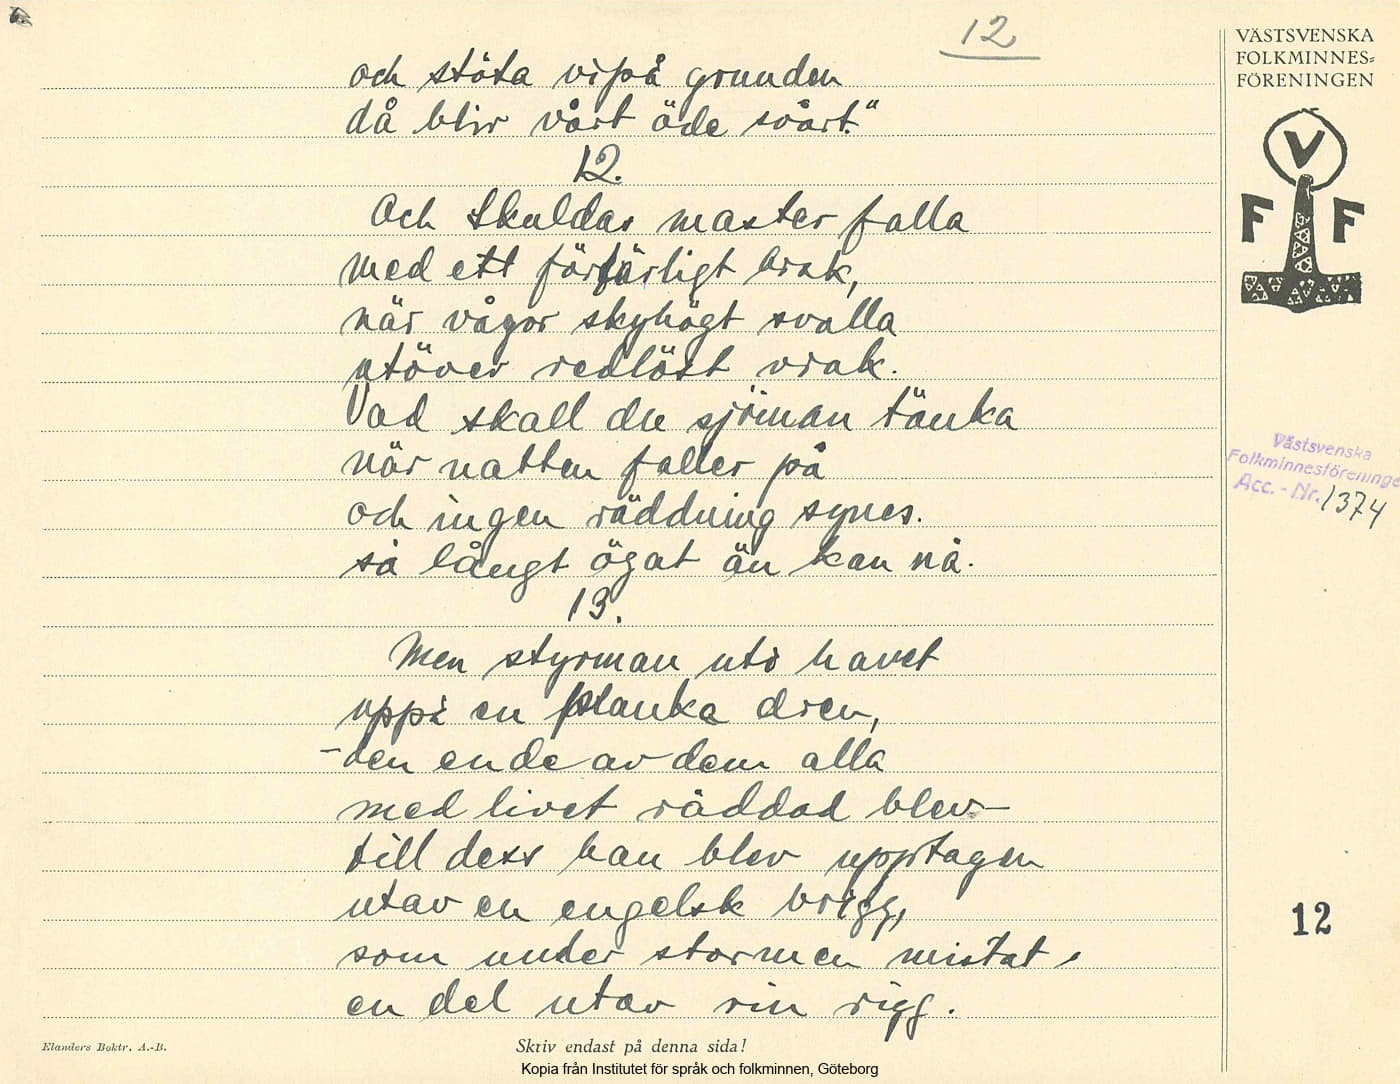 12
VÄSTSVENSKA
FOLKMINNES=
FÖRENINGEN
V
F F
och stöta vi på grunden
då blir vårt öde svårt."
12.
Och Skuldas master falla
med ett förfärligt brak,
när vågor skyhögt svalla
utöver redlöst vrak.
Vad skall du sjöman tänka
när natten faller på
och ingen räddning synes.
så långt ögat än kan nå.
13.
Men styrman uti havet
uppå en planka drev,
-den ende av dem alla
med livet räddad blev-
till dess han blev upptagen
utav en engelsk brigg,
som under stormen mistat
en del utav sin rigg.
Västsvenska
Folkminnesföreningen
Acc. - Nr. 1374
12
Elanders Boktr. A.-B.
Skriv endast på denna sida!
Kopia från Institutet för språk och folkminnen, Göteborg